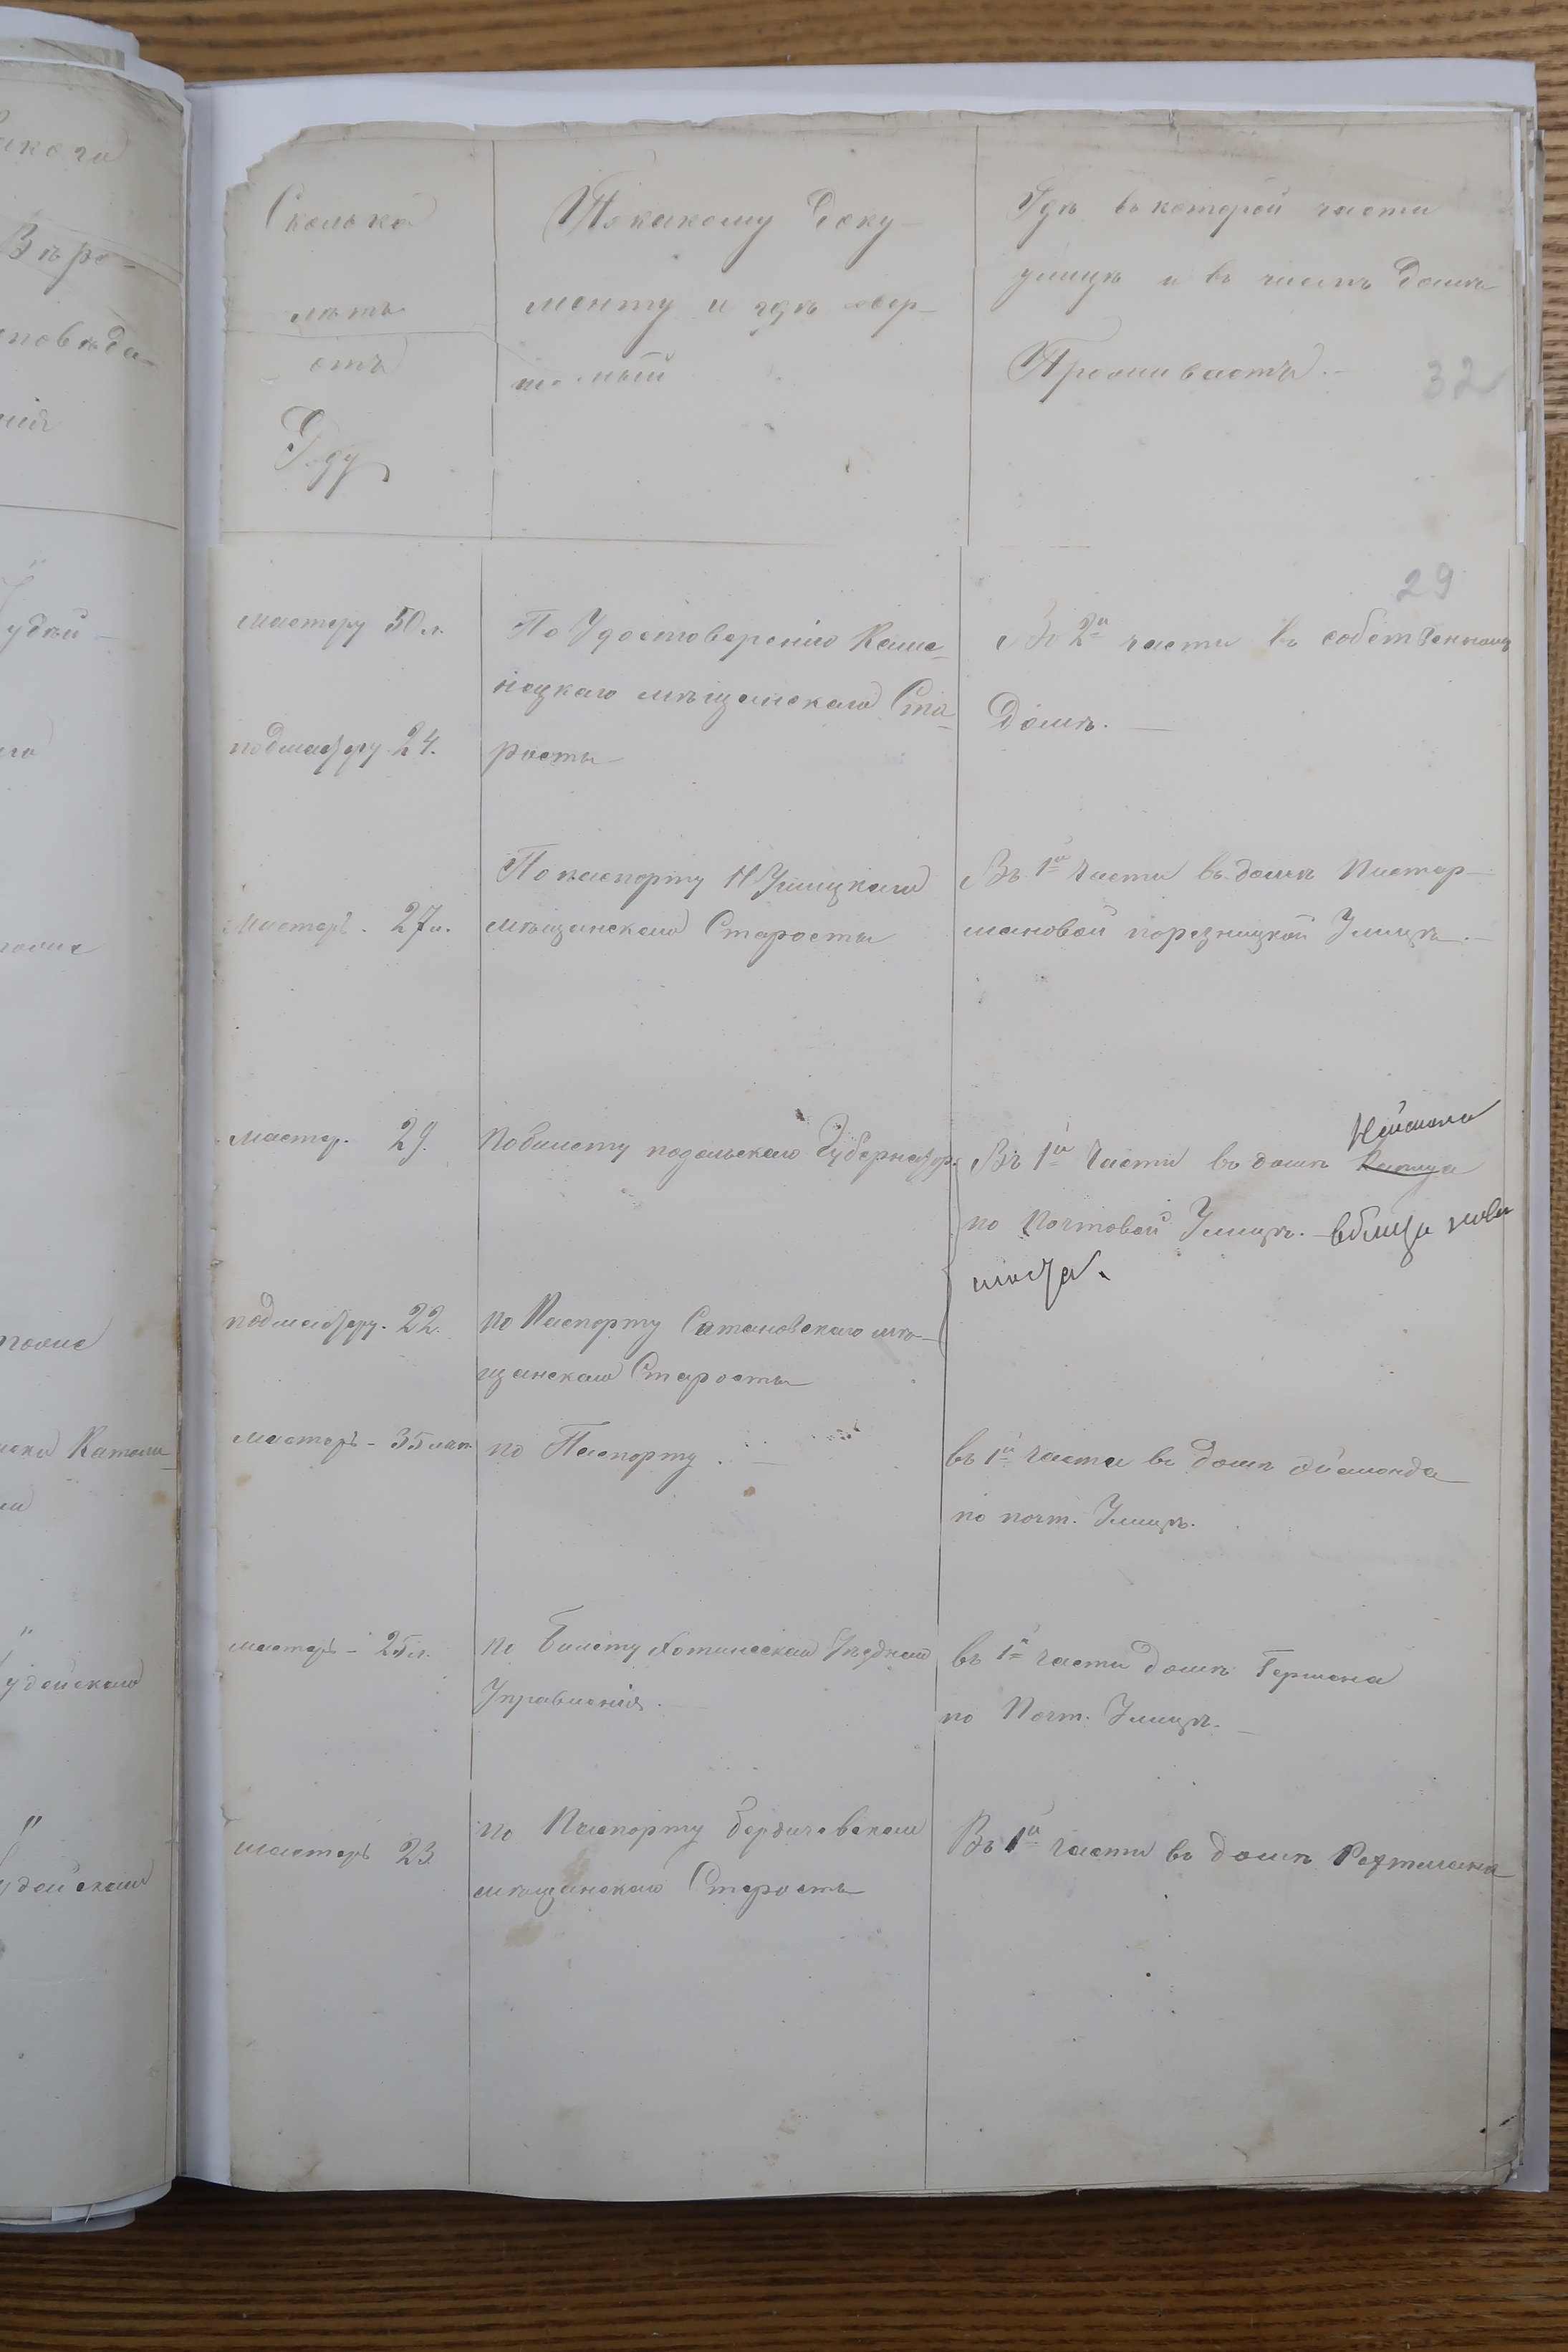 Сколько
лѣтъ
отъ
Роду
По какому доку-
менту и гдѣ совер-
шенный
Гдѣ въ которой части
улицѣ и въ чьемъ домѣ
Проживаетъ.-
32
29
мастеру 50 л.
подмастеру 24.
По Удостоверенію Каме-
нецкаго мѣщанскаго Ста-
росты
Во 2й части въ собственномъ
Домѣ.-
Мастеръ. 27 л.
По паспорту Н Ушицкаго
мѣщанскаго Старосты
Въ 1й части въ домѣ
мановой порезницкой Улицѣ.-
Мастер. 29.
По билету подольскаго Губернатор.
Неймана
Въ 1й Части въ домѣ
по Почтовой Улицѣ. вблизи нова
моста.
подмастеру. 22.
по Паспорту Сатановскаго мѣ-
щанскаго Старосты
мастеръ - 35 лѣт.
по Паспорту.-
въ 1й части въ домѣ Діамонда
по почт. Улицѣ.
мастеръ - 25 л.
по Билету Хотинскаго Уѣзднаго
Управленія.-
въ 1й части домѣ Гершена
по Почт. Улицѣ.-
мастеръ 23.
по Паспорту Бердичевскаго
мѣщанскаго Старосты
Въ 1й части въ домѣ Рехтмана
акого
Вѣро-
споведа-
нія
Іудей-
тоже
тоже
Католи-
Іудейскаго
Іудейскаго